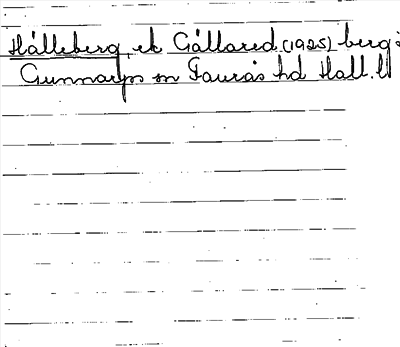 Hålleberg, ek Gällared (1925) berg :
Gunnarps sn Faurås hd Hall. l